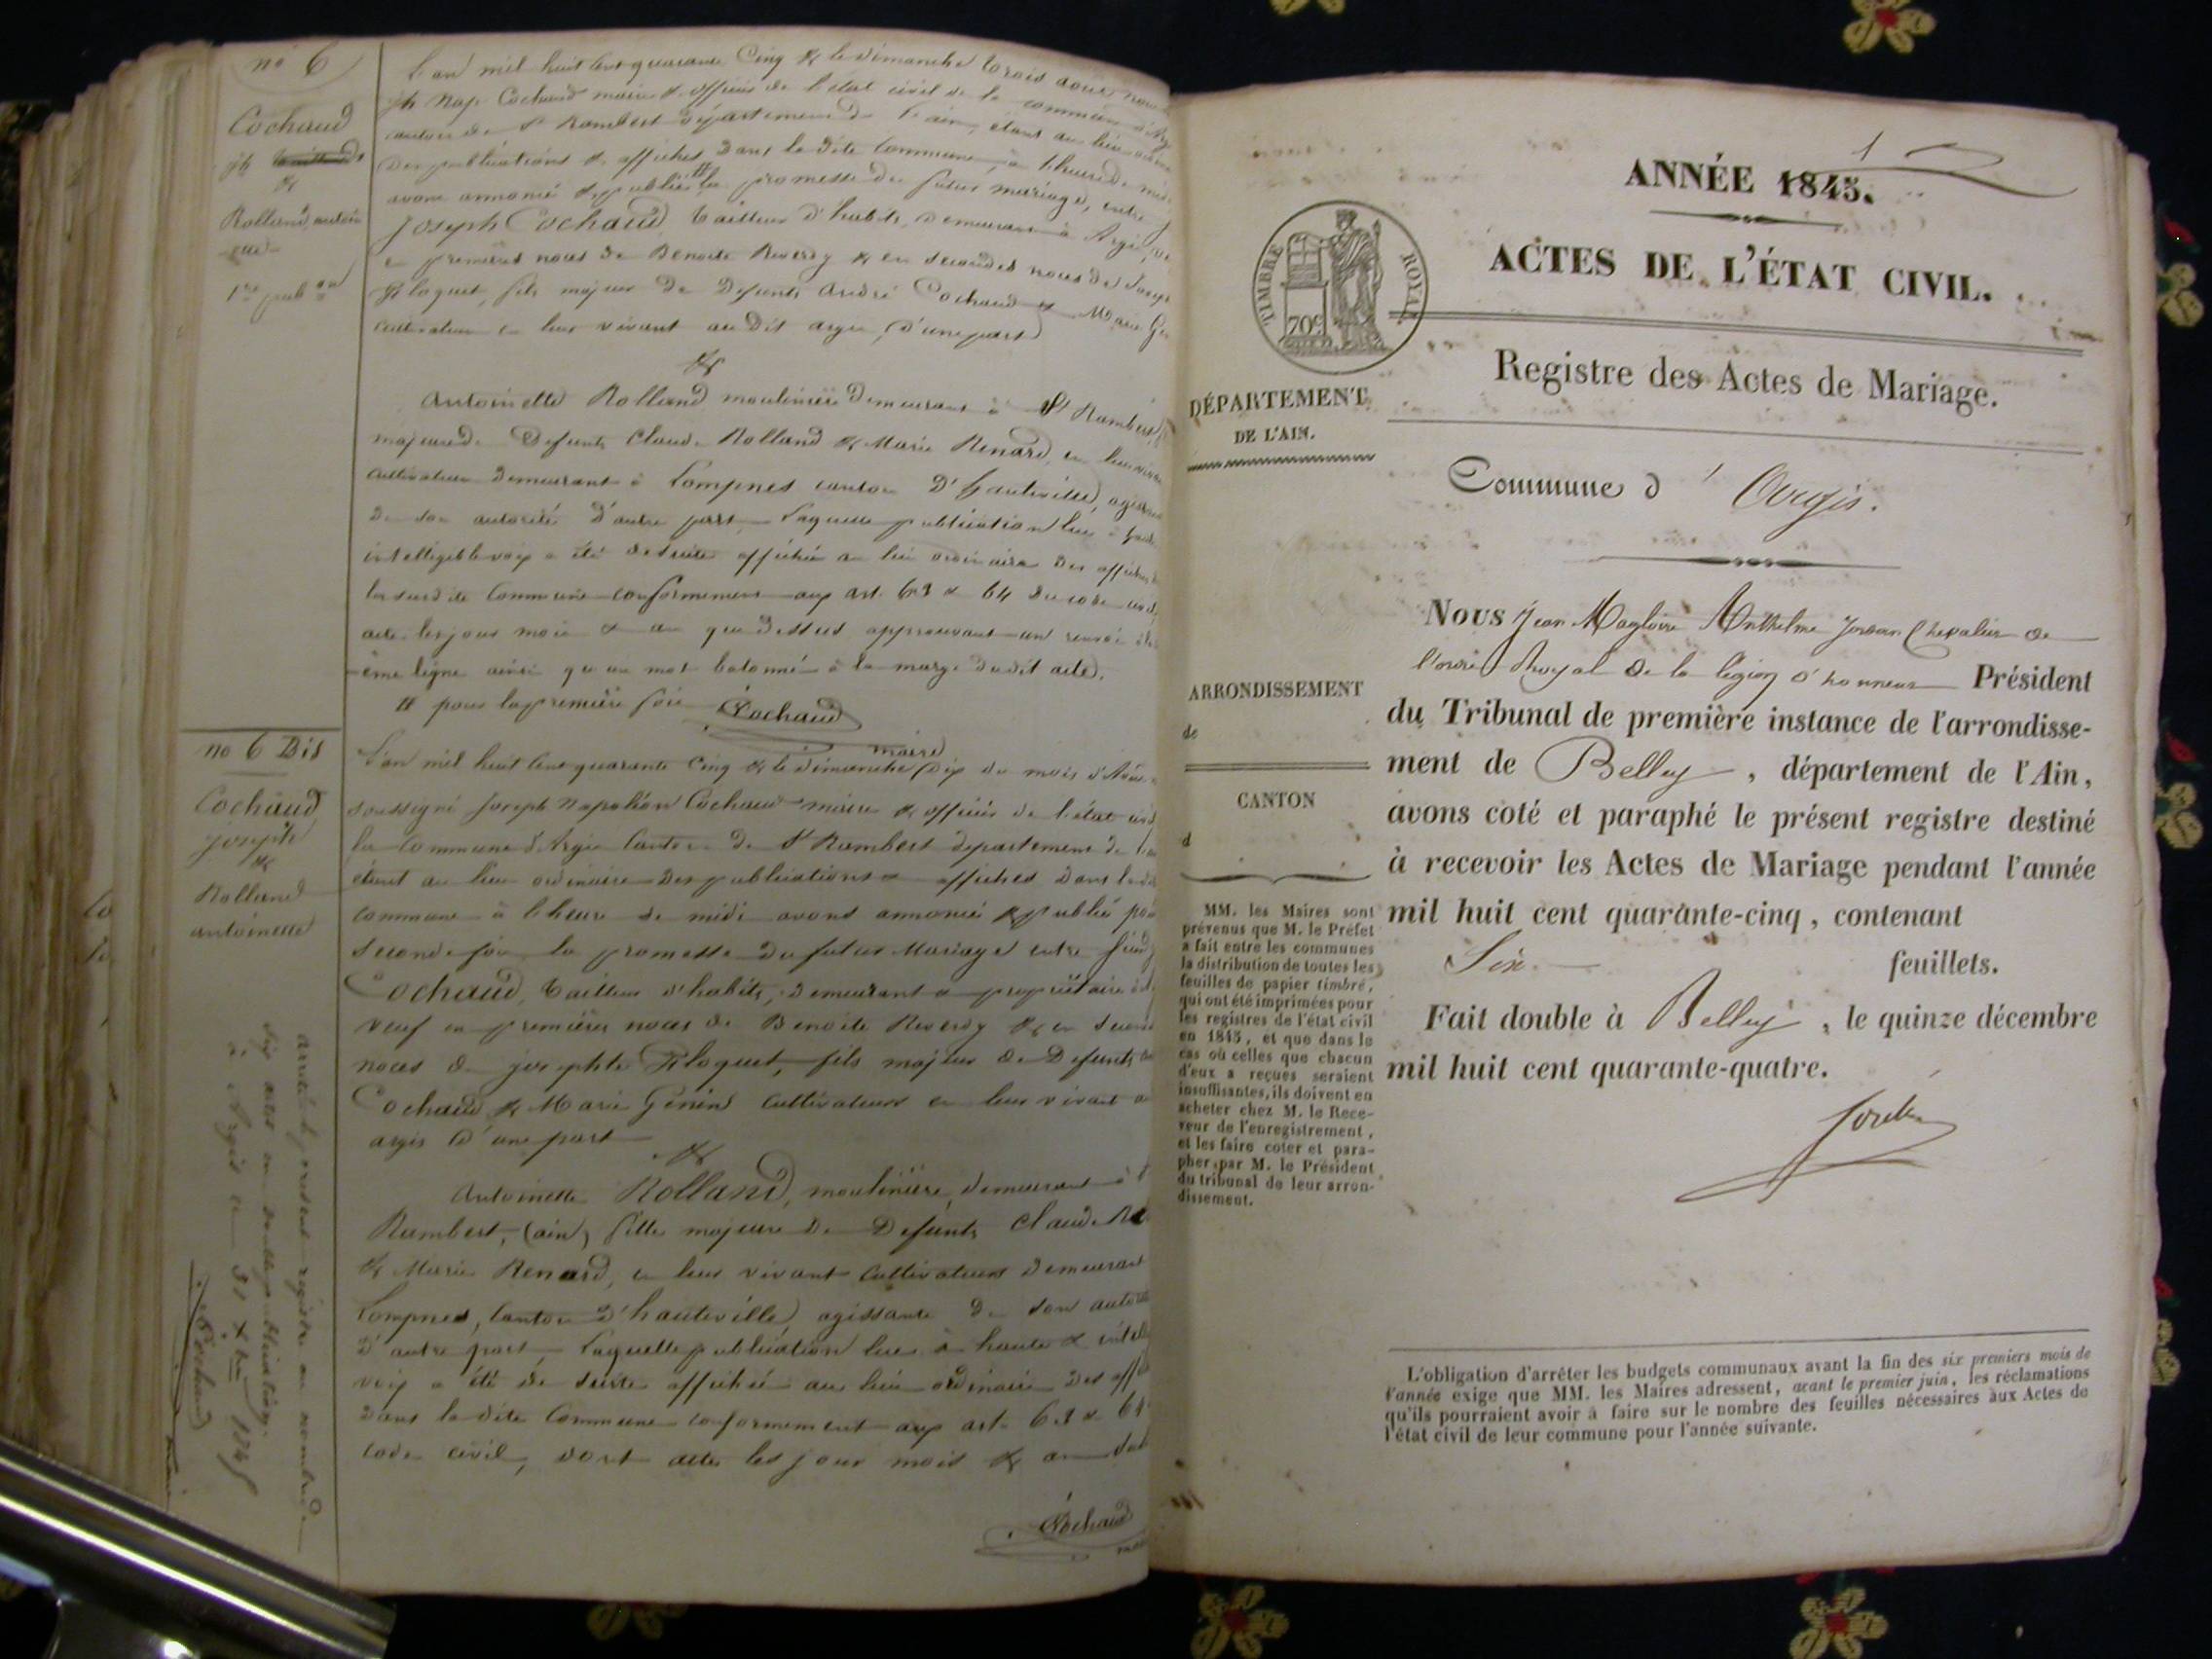 no 6
Cochaud
jh
&
Rolland antoi
1re pub on
L'an mil huit cent quarante Cinq & le dimanche trois aout nous
jh Nap. Cochaud maire & officier de l'état civil de la commune d'Argis
canton de St Rambert département de l'ain, étant au lieu
des publications & affiches dans la dite Commune, à l'heure de midi
avons annoncé & publié # la promesse du futur mariage, entre
Joseph Cochaud, tailleur d'habits, demeurant à Argis,
en premières noces de Benoite Reverdy & en secondes noces de
Floquet, fils majeur de Defunts André Cochaud & Marie
cultivateurs en leur vivant au dit argis, (d'une part)
&
Antoinette Rolland moulinière demeurant à St Rambert,
majeure de Defunts Claude Rolland & Marie Renard, en leur vivant
cultivateurs demeurant à Lompnes canton D'hauteville, agissant
de son autorité d'autre part. Laquelle publication lue à haute
intelligible voix a été de suite affichée au lieu ordinaire des affiches
la susdite Commune conformement aux art. 63 & 64 du code civil
acte les jour mois & an que dessus approuvant un renvoi
-ème ligne ainsi qu'un mot batonné à la marge dudit acte.
# pour la première fois Cochaud
maire
no 6 Bis
Cochaud
joseph
&
Rolland
antoinette
L'an mil huit cent quarante Cinq & le dimanche dix du mois d'Aout
soussigné Joseph Napoléon Cochaud maire & officier de l'état civil
la Commune d'Argis Canton de St Rambert département de l'ain
étant au lieu ordinaire des publications & affiches dans la dite
commune à l'heure de midi avons annoncé & publié pour
seconde fois la promesse du futur Mariage entre
Cochaud, tailleur d'habits, demeurant & propriétaire
veuf en premières noces de Benoite Reverdy & en secondes
noces de josephte Floquet, fils majeur de Defunts
Cochaud & Marie Génin cultivateurs en leur vivant à
argis d'une part
&
Antoinette Rolland, moulinière, demeurant à St
Rambert, (ain) fille majeure de Defunts Claude
& Marie Renard, en leur vivant cultivateurs demeurant
Lompnes, Canton d'hauteville, agissante de son autorité
d'autre part, Laquelle publication lue à haute & intelligible
voix a été de suite affichée au lieu ordinaire des affiches
dans la dite Commune conformement aux art. 63 & 64
code civil, dont acte les jour mois & an
Cochaud
arrêté le présent registre au nombre de
six actes
à Argis le 31 Xbre 1845
Cochaud maire
1
ANNÉE 1845.
ACTES DE L'ÉTAT CIVIL.
TIMBRE ROYAL
70c
Registre des Actes de Mariage.
DÉPARTEMENT
DE L'AIN.
Commune d'Argis.
Nous Jean Magloire Anthelme Chevalier de
l'ordre Royal de la légion d'honneur Président
du Tribunal de première instance de l'arrondisse-
ment de Belley, département de l'Ain,
avons coté et paraphé le présent registre destiné
à recevoir les Actes de Mariage pendant l'année
mil huit cent quarante-cinq, contenant
Six feuillets.
Fait double à Belley, le quinze décembre
mil huit cent quarante-quatre.
ARRONDISSEMENT
de
CANTON
d
MM. les Maires sont
prévenus que M. le Préfet
a fait entre les communes
la distribution de toutes les
feuilles de papier timbré,
qui ont été imprimées pour
les registres de l'état civil
en 1845, et que dans le
cas où celles que chacun
d'eux a reçues seraient
insuffisantes, ils doivent en
acheter chez M. le Rece-
veur de l'enregistrement,
et les faire coter et para-
pher par M. le Président
du tribunal de leur arron-
dissement.
L'obligation d'arrêter les budgets communaux avant la fin des six premiers mois de
l'année exige que MM. les Maires adressent, avant le premier juin, les réclamations
qu'ils pourraient avoir à faire sur le nombre des feuilles nécessaires aux Actes de
l'état civil de leur commune pour l'année suivante.